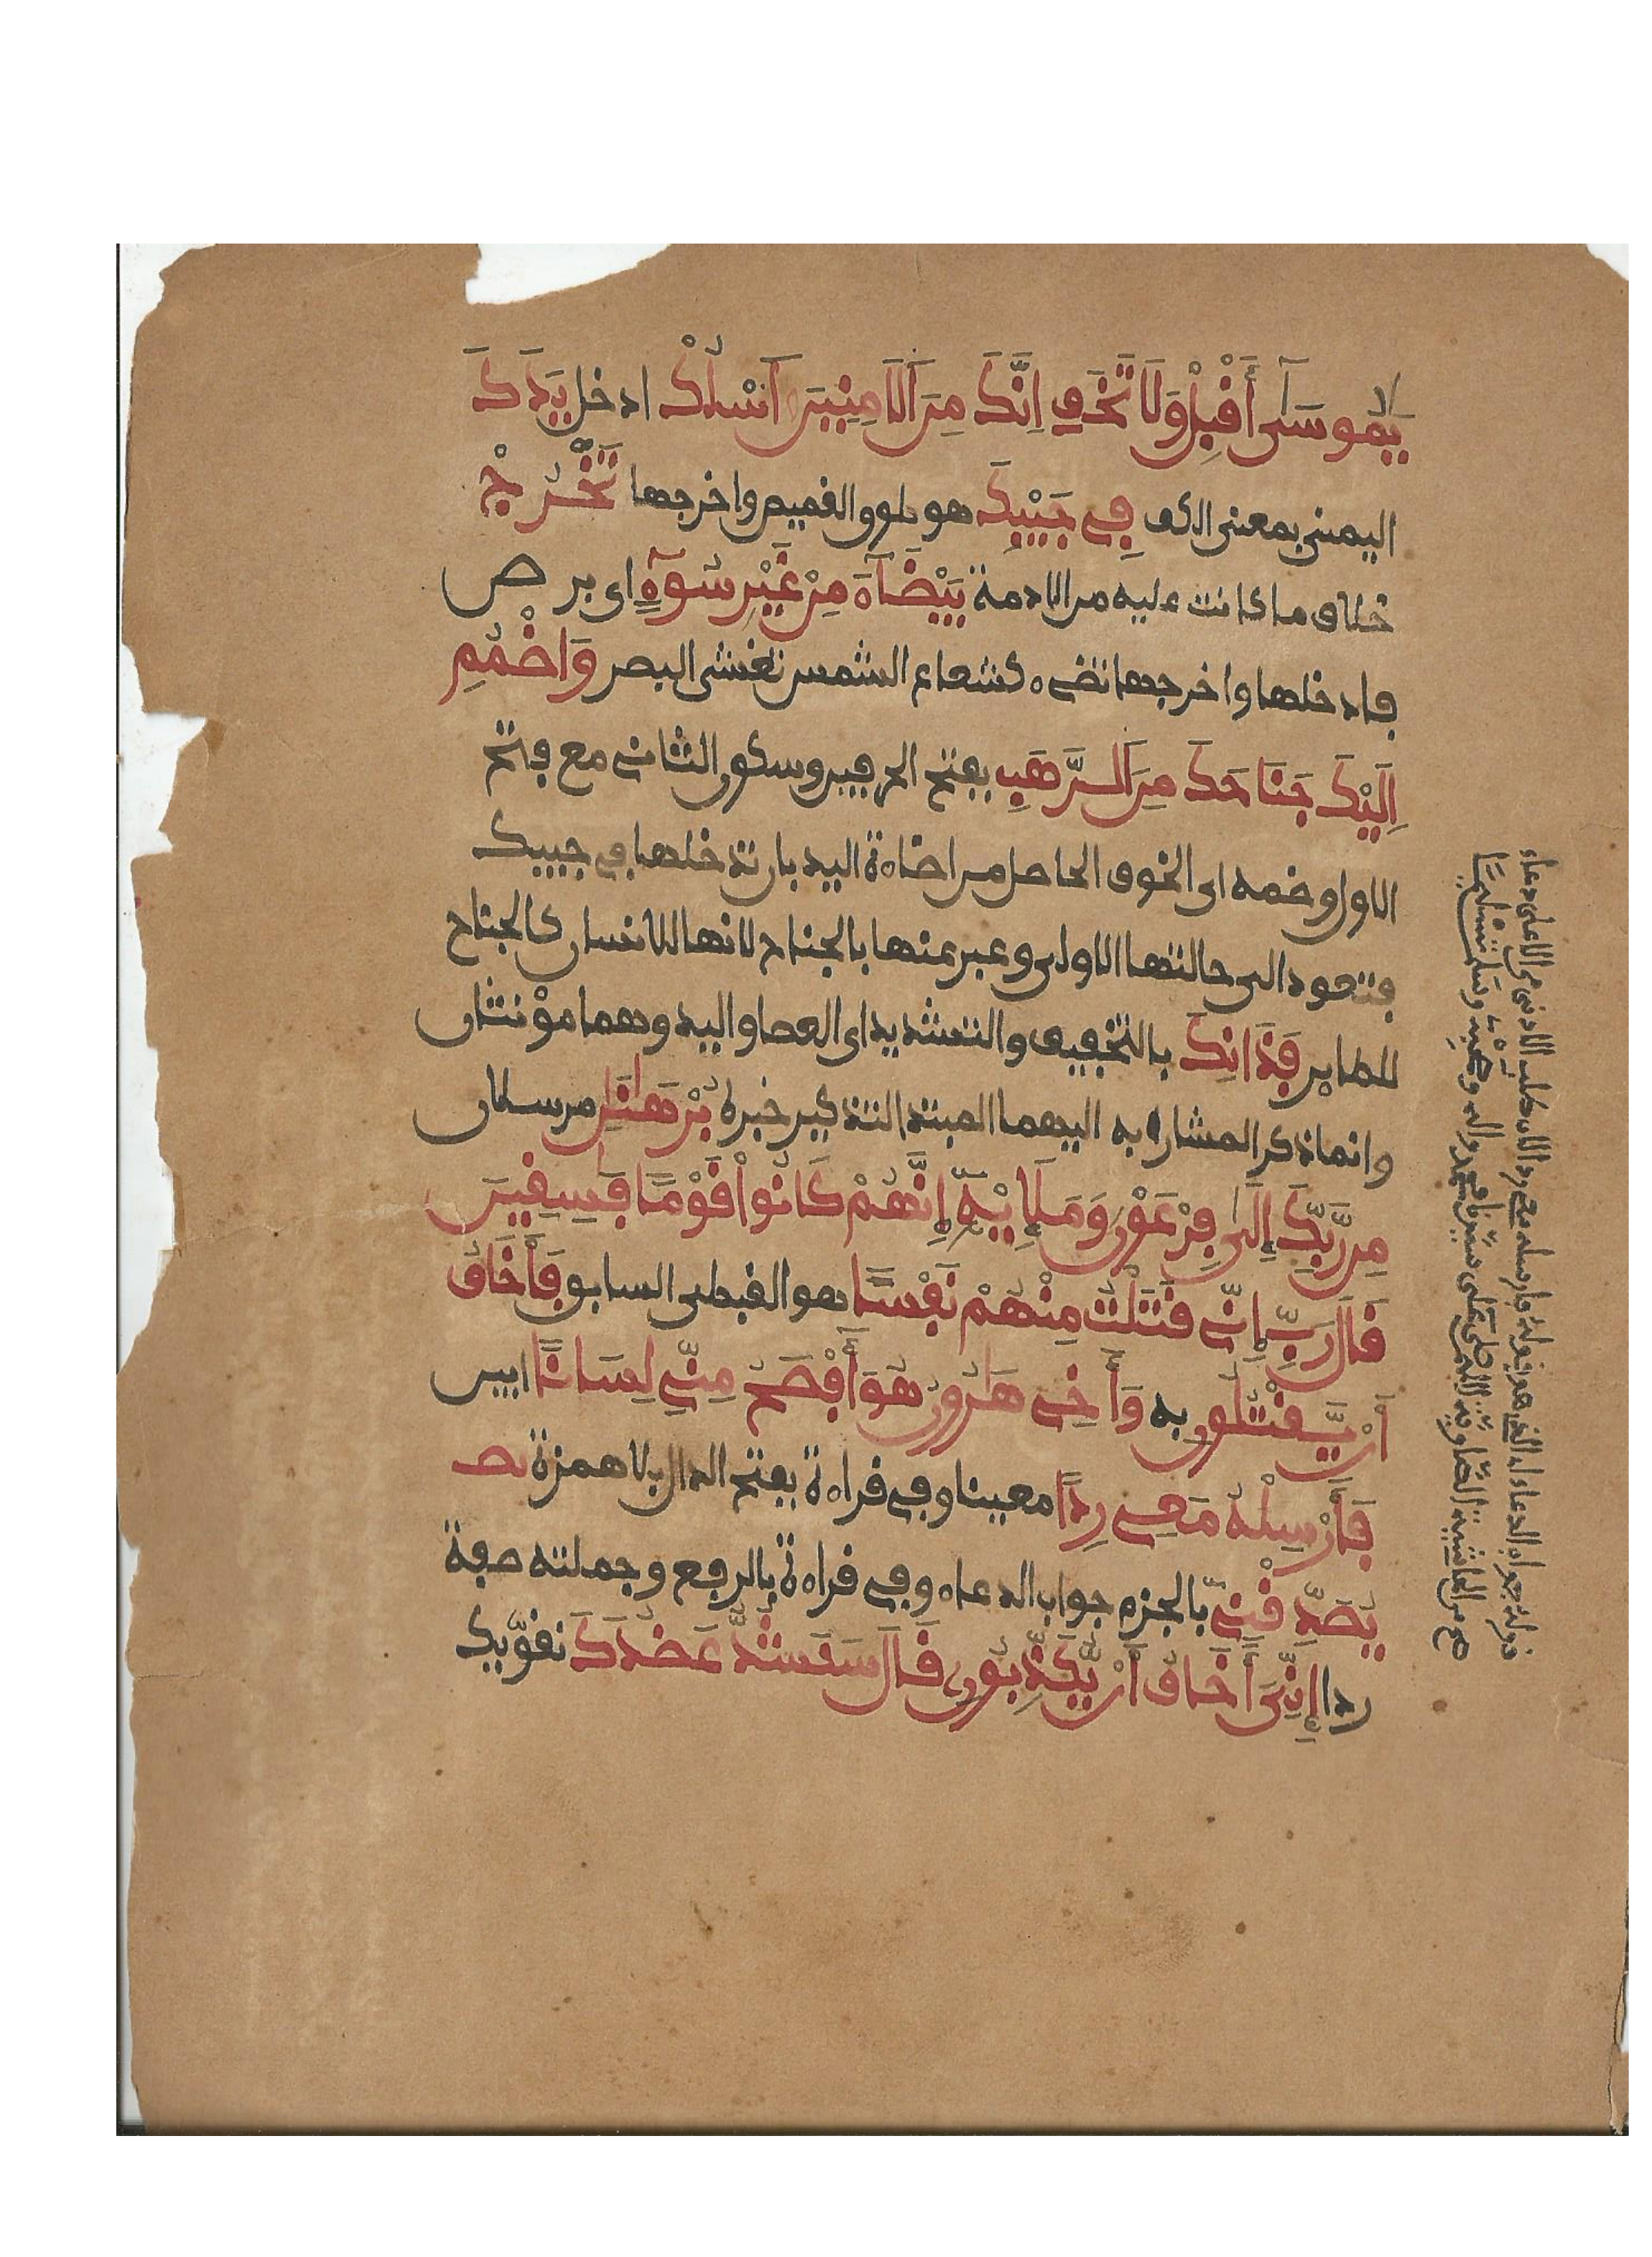 يَٰمُوسَىٰ أَقْبِلْ وَلَا تَخَفِ اِنَّكَ مِنَ اَلَامِنِينَ اَسْلُكْ ادخل يَدَكَ
اليمنى بمعنى الكف فِے جَيْبِكَ هو طوق القميص واخرجها تَخْرُجْ
خلاف ما كانت عليه من الادمة بَيْضَآءَ مِنْ غَيْرِ سُوٓءٍ اى برص
فادخلها واخرجها تضىء كشعاع الشمس تغشى البصر وَاضْمُمِ
اِلَيْكَ جَنَاحَكَ مِنَ اَلرَّهَبِ بفتح الحرفين وسكون الثانے مع فتح
الاول وضمه اى الخوف الحاصل من اضاءة اليد بان تدخلها فے جيبك
فتعود الى حالتها الاولى وعبر عنها بالجناح لانها للانسان كالجناح
للطاير فَذَانِكَ بالتخفيف والتشديد اى العصا واليد وهما مؤنثان
وانما ذكر المشار به اليهما المبتدا لتذكير خبره بُرْهَٰنَٰنِ مرسلان
مِن رَّبِّكَ إِلَىٰ فِرْعَوْنَ وَمَلَإِيْهِۦٓ إِنَّهُمْ كَانُوا۟ قَوْمًا فَٰسِقِينَ
قَالَ رَبِّ إِنِّے قَتَلْتُ مِنْهُمْ نَفْسًا هو القبطى السابق فَأَخَافُ
أَنْ يَّقْتُلُونِ به وَأَخِے هَٰرُونُ هُوَ أَفْصَحُ مِنِّے لِسَانًا ابين
فَأَرْسِلْهُ مَعِے رِدًا معينا وفے قراءة بفتح الدال بلا همزة يصـ
يُصَدِّقْنِے بالجزم جواب الدعاء وفے قراءة بالرفع وجملته صفة
ردا إِنِّىَ أَخَافُ أَنْ يُّكَذِّبُونِ قَالَ سَنَشُدُّ عَضُدَكَ نقويك
قوله جواب الدعاء اى الذى هو قوله فارسله معى ردا لان طلب الادنى من الاعلى دعاء
صح من الحاشية الصاوية اللهم صل على سيدنا محمد واله وصحبه وسلم تسليما